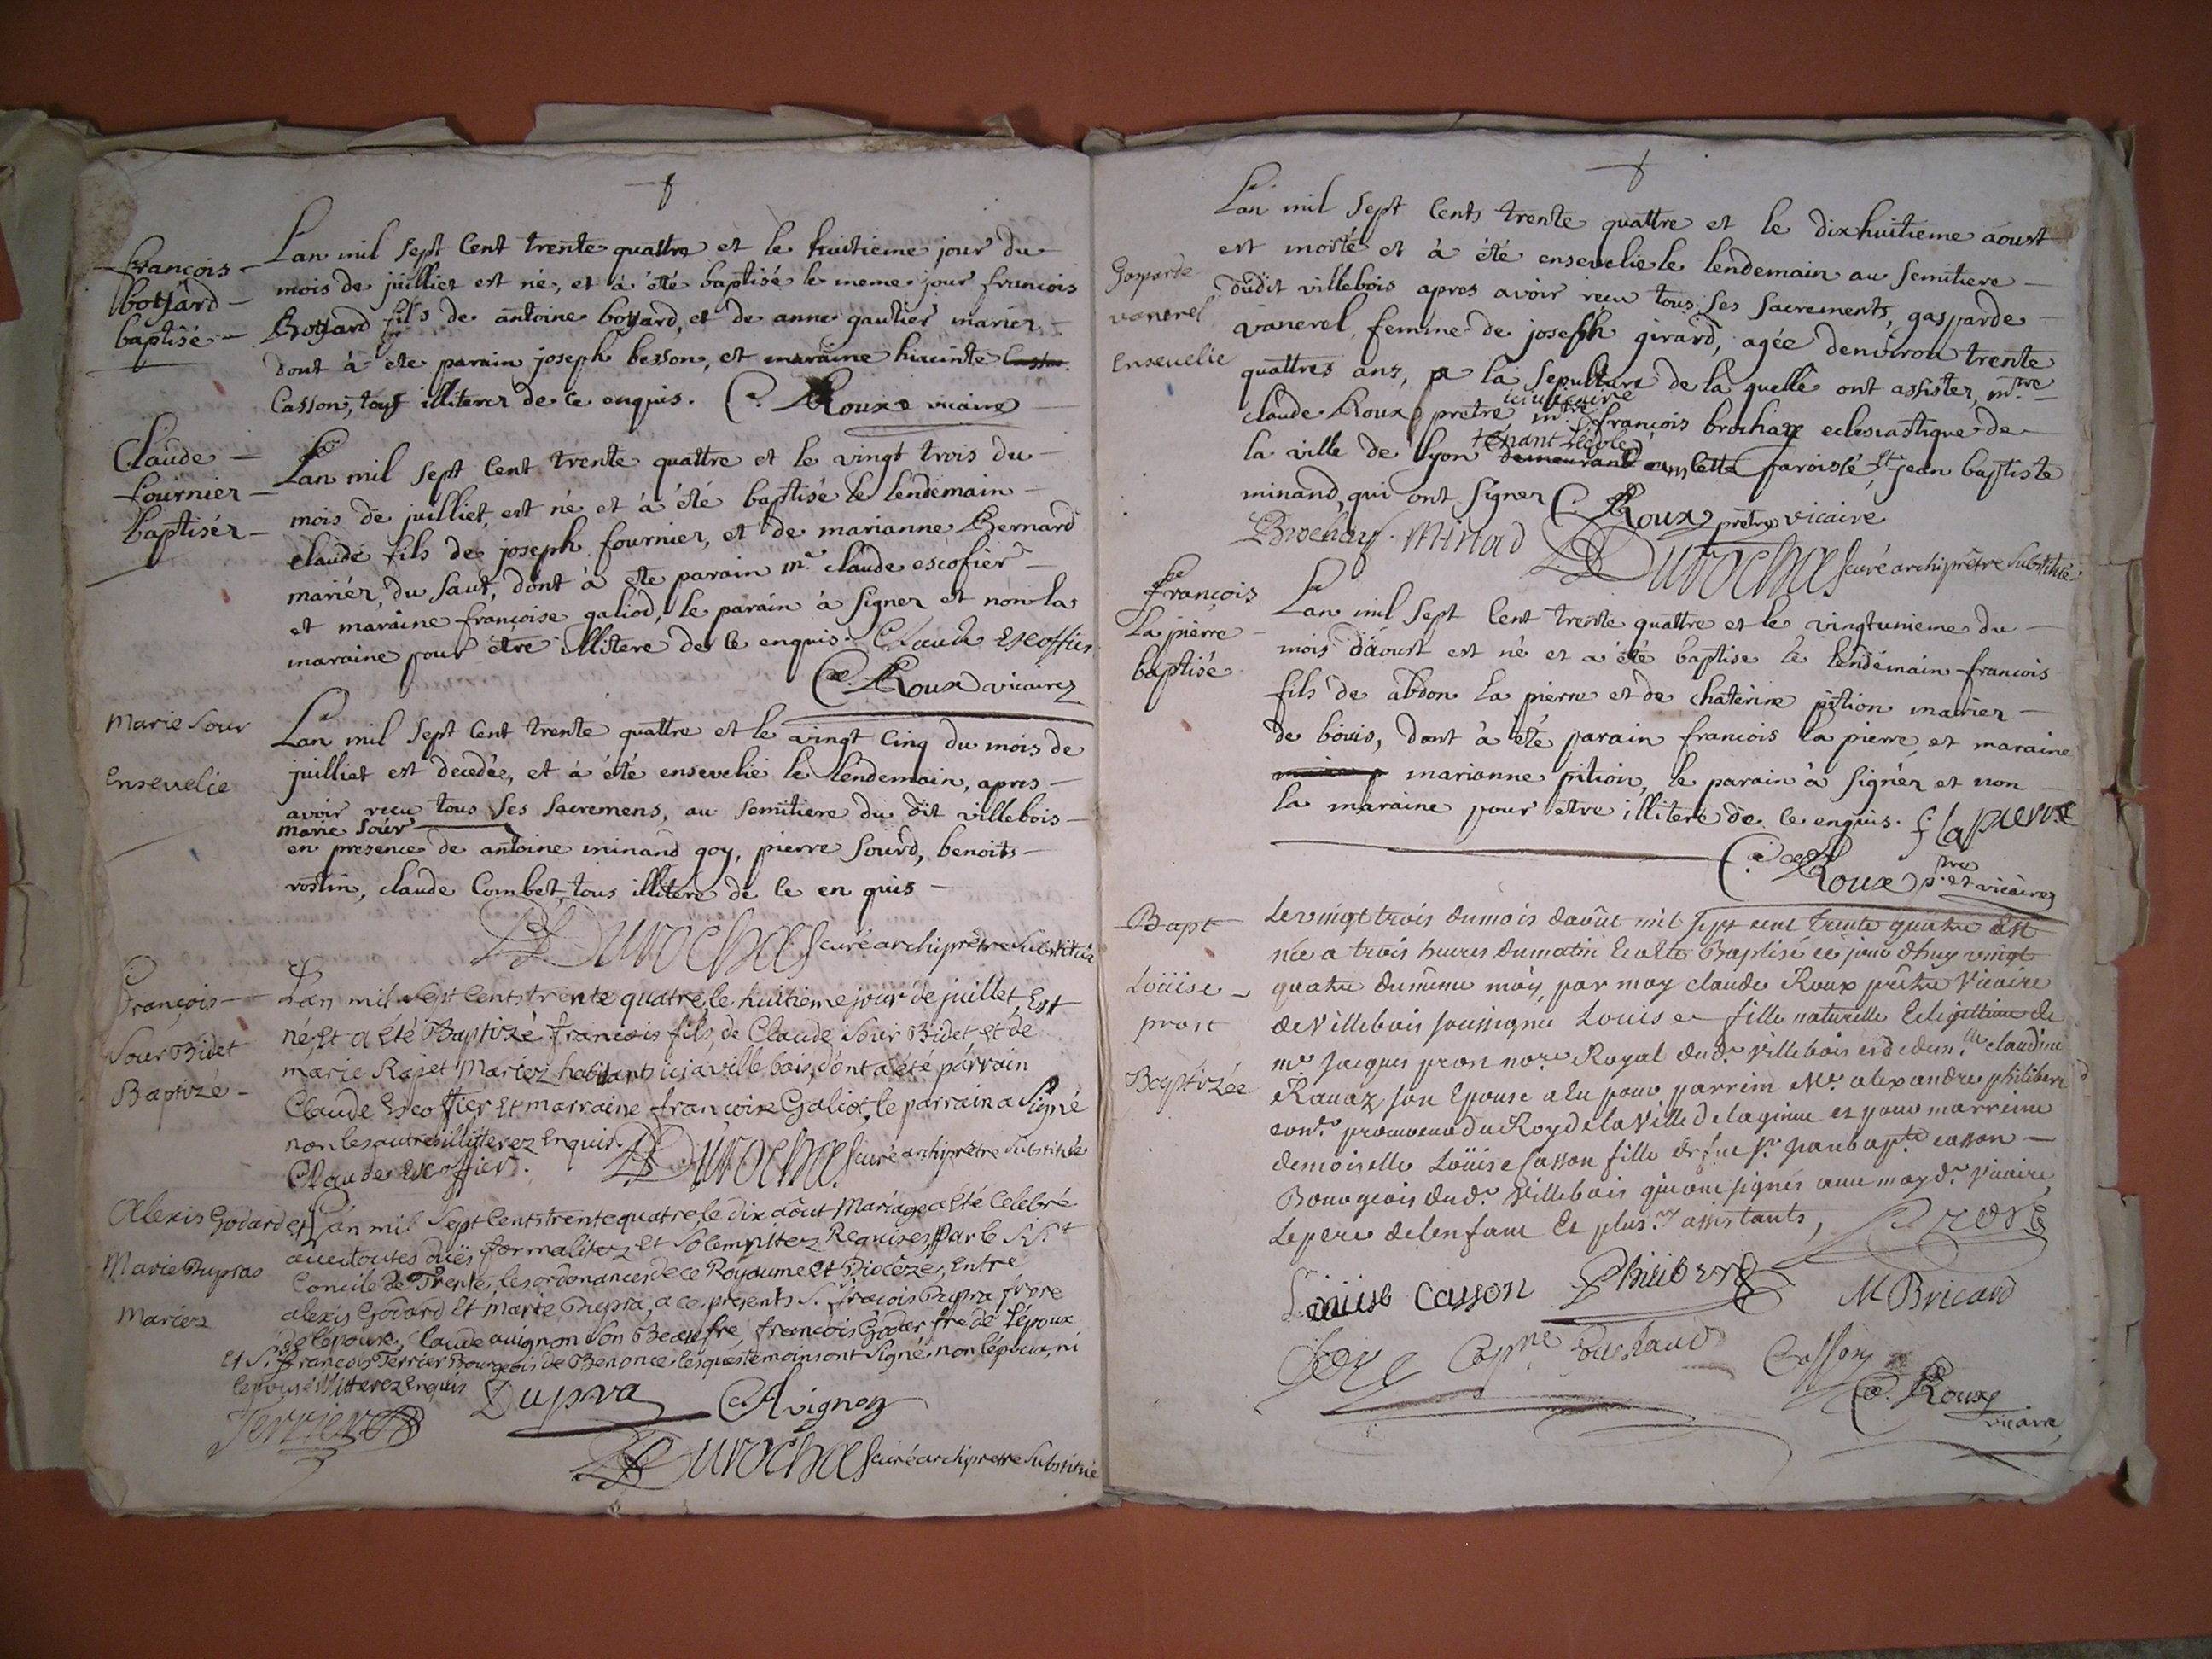 françois
boyard
baptisé
Lan mil sept Cent trente quattre et le huitieme jour du
mois de juilliet est né, et à été baptisé le meme jour francois
Boyard fils de antoine boyard, et de anne gautier mariez
dont à été parain joseph besson, et maraine hiacinte
Casson, tous illiterez de ce enquis. C. Roux vicaire
Claude
fournier
baptisér
Lan mil sept Cent trente quattre et le vingt trois du
mois de juilliet, est né et à été baptisé le lendemain
claude fils de joseph fournier, et de marianne Bernard
mariér, du Saut, dont à été parain mr claude escofier
et maraine françoise galiod, le parain à signer et non la
maraine pour être illitere de ce enquis. Claude Escoffier
C. Roux vicaire
Marie Sour
Ensevelie
Lan mil sept Cent trente quattre et le vingt Cinq du mois de
juilliet est decedée, et à été ensevelie le lendemain, apres
avoir reçu tous ses sacremens, au semitiere du dit villebois
marie sour
en presence de antoine minand goy, pierre sourd, benoits
rostin, claude Combet, tous illitere de ce en quis
Durochas curé archiprêtre substitué
François
Sour Bidet
Baptizé
Lan mil sept Cents trente quatre, le huitieme jour de juillet, Est
né, Et a été Baptizé françois fils, de Claude Sour Bidet et de
marie Rajet Mariez habitants ici à villebois, dont a été parrain
Claude Escoffier Et marraine françoise Galiot, le parrain a signé
non les autres illitterez Enquis. Durochas curé archiprêtre substitué
Claude Escoffier
Alexis Godard et
Marie Dupras
Mariez
Lan mil sept Cents trente quatre, le dix aôut Mariage a Eté Celebré
avec toutes duës formalitez et Solemnitez Requises Par le St
Concile De Trente, les ordonances de ce Royaume Et Diocèze, Entre
alexis Godard Et Marie Dupra, a ce presents Sr françois Dupra frere
de l'epouse, Claude avignon son Beaufre, francois Godar fre de l'époux
et Sr François Terrier Bourgeois de Benonce lesquels temoins ont signé, non l'époux, ni
l'epouse illitterez Enquis
Dupra
C Avignon
Terrier
Durochas curé archiprêtre substitué
Gasparde
vanerel
Ensevelie
Lan mil sept Cents trente quattre et le dixhuitieme aoust
est morté et à été ensevelie le lendemain au semitiere
dudit villebois apres avoir recu tous ses sacrements, gasparde
vanerel femme de joseph girard, agée denviron trente
quattres ans, a la sepulture de la quelle ont assister, mtre
claude Roux prêtre vicaire mtre françois brochay eclesiastique de
la ville de lyon tenant lecole demeurant en cette paroisse, Sr jean baptiste
minand, qui ont signer C. Roux prêtre vicaire
Brochay. Minad
Durochas curé archiprêtre substitué
françois
La pierre
baptisé
Lan mil sept Cent trente quattre et le vingtunieme du
mois d'aoust est né et a été baptise le lendemain francois
fils de abdon la pierre et de chaterine pition marier
de bouis, dont à été parain francois la pierre, et maraine
marianne pition, le parain à signér et non
la maraine pour etre illiteré de ce enquis. f lapierre
C. Roux ptre et vicaire
Bapt
Loüise
prost
Baptizée
Le vingt trois dumois daoût mil sept cent trente quatre est
née a trois heures dumatin Et a Eté Baptisé ce jour dhuy vingt
quatre dumême mois, par moy claude Roux prêtre Vicaire
de Villebois soussigné Louise fille naturelle Et legittime de
mr Jacques prost nore Royal dud. Villebois et de demlle claudine
Ravaz son Epouse a Eu pour parrein Mr alexandre philibert
procureur du Roy de la Ville de lagnieu et pour marreine
demoiselle Loüise Casson fille de feu Sr Jean bapte casson
Bourgeois dud. Villebois qui ont signés avec moy d. Vicaire
Le pere de lenfant Et plusrs assistants,
Prost
Loüise Casson
Philibert
M Bricard
Casson
C. Roux
vicaire